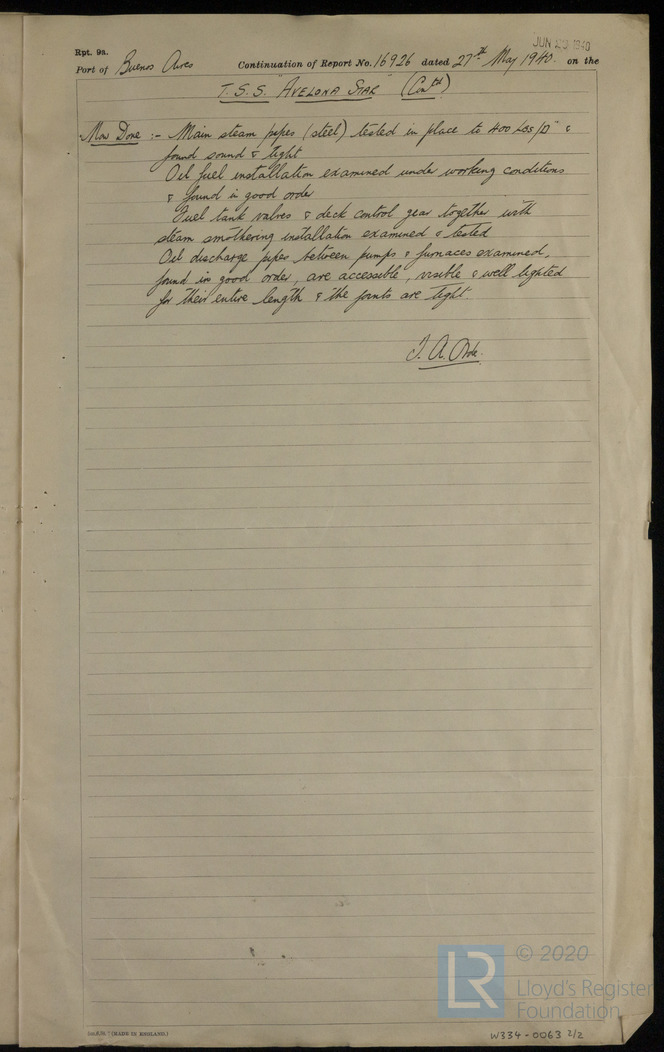 JUN 20 1940
Rpt. 9a.
Port of Buenos Aires Continuation of Report No. 16926 dated 27th May 1940. on the
T.S.S. "AVELONA STAR" (Contd)
Now Done :- Main steam pipes (steel) tested in place to 400 Lbs/□" &
found sound & tight
Oil fuel installation examined under working conditions
& found in good order
Fuel tank valves & deck control gear together with
steam smothering installation examined & tested
Oil discharge pipes between pumps & furnaces examined,
found in good order, are accessible, visible & well lighted
for their entire length & the joints are tight.
J. A.
(MADE IN ENGLAND.)
LR
© 2020
Lloyd's Register
Foundation
W334-0063 2/2